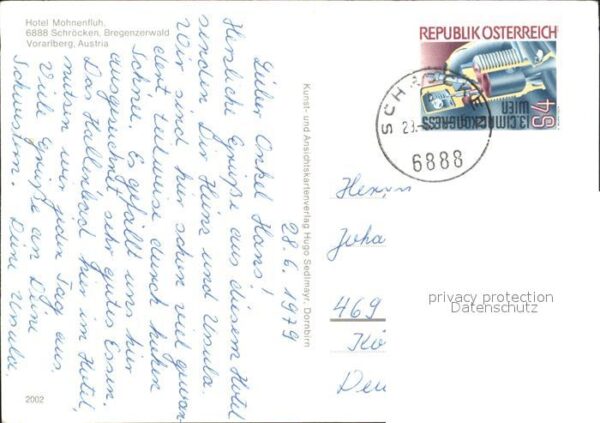 Hotel Mohnenfluh,
6888 Schröcken, Bregenzerwald
Vorarlberg, Austria
28. 6. 1979
Lieber Onkel Hans!
Herzliche Grüße aus diesem Hotel
senden Dir Heinz und Ursula.
Wir sind hier schon viel gewan-
dert teilweise durch hohen
Schnee. Es gefällt uns hier
ausgezeichnet sehr gutes Essen.
Das Hallenbad hier im Hotel,
nutzen wir jeden Tag aus.
Viele Grüße an Deine
Schwestern. Deine Ursula.
2002
Kunst- und Ansichtskartenverlag Hugo Sedlmayr, Dornbirn
REPUBLIK ÖSTERREICH
13. CIMAC KONGRESS
WIEN
S4
6888
Herrn
Joha
469
Deu
privacy protection
Datenschutz